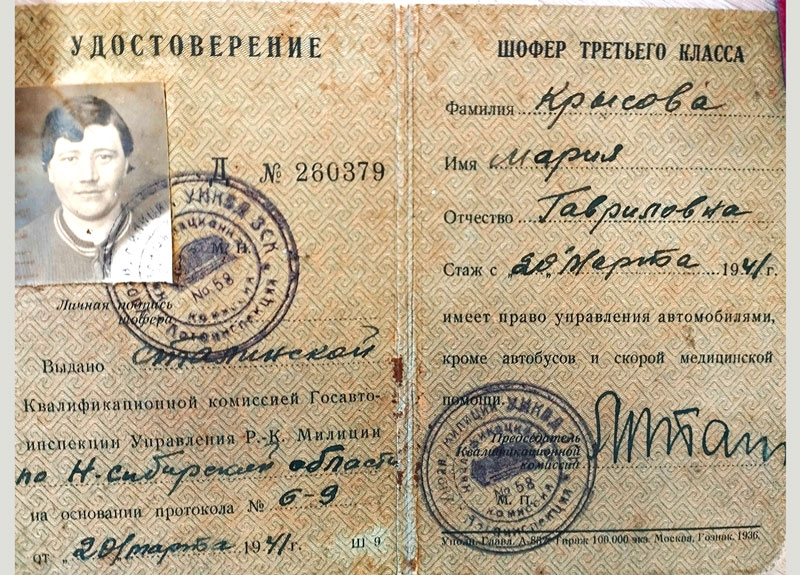 УДОСТОВЕРЕНИЕ
Д № 260379
М. П.
Личная подпись
шофера
Выдано Сталинской
Квалификационной комиссией Госавто-
инспекции Управления Р.-К. Милиции
по Н-сибирской области
на основании протокола № 6-9
от „20“ марта 1941г.
Ш 9
УНКВД ЗСК
No 58
комиссия
Госавтоинспекция
ШОФЕР ТРЕТЬЕГО КЛАССА
Фамилия Крысова
Имя Мария
Отчество Гавриловна
Стаж с „20“ Марта 1941г.
имеет право управления автомобилями,
кроме автобусов и скорой медицинской
помощи.
Председатель
Квалификационной
комиссии
М. П.
милиции УНКВД
No 58
комиссия
Госавтоинспекция
Уполн. Главл. Тираж 100.000 экз. Москва, Гознак. 1936.